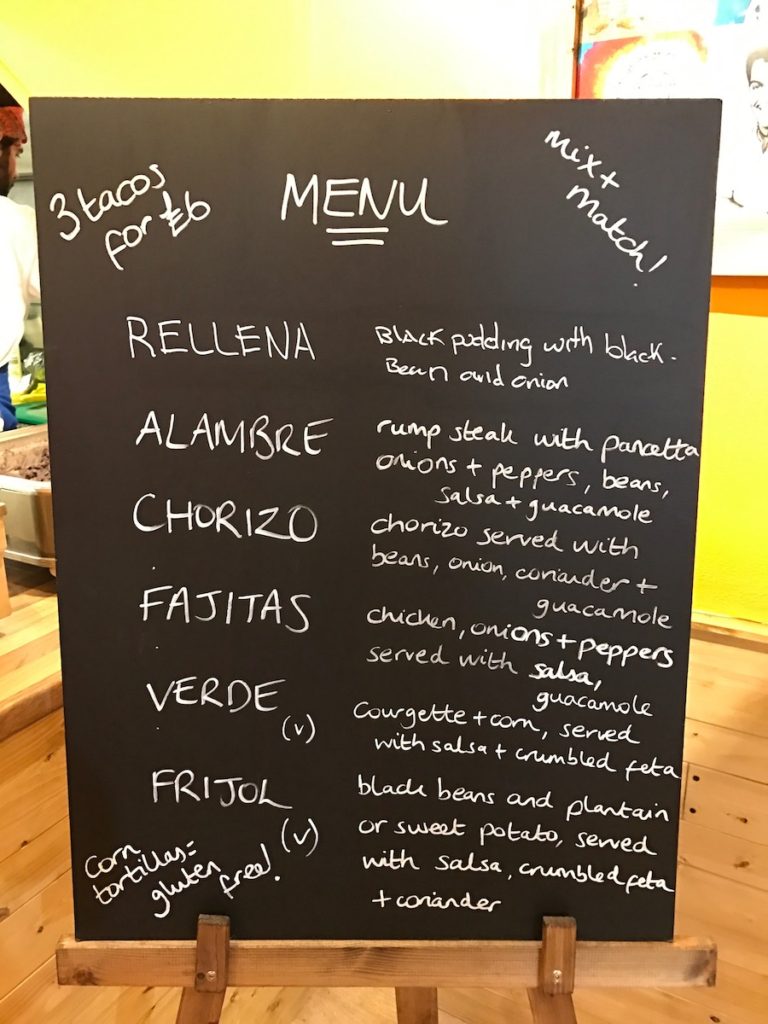 3 tacos
for £6
MENU
Mix +
Match!
RELLENA
Black pudding with black-
Bean and onion
ALAMBRE
rump steak with pancetta
onions + peppers, beans,
salsa + guacamole
CHORIZO
chorizo served with
beans, onion, coriander +
guacamole
FAJITAS
chicken, onions + peppers
served with salsa,
guacamole
VERDE
(v)
Courgette + corn, served
with salsa + crumbled feta
FRIJOL
(v)
black beans and plantain
or sweet potato, served
with salsa, crumbled feta
+ coriander
corn
tortillas =
gluten
free!